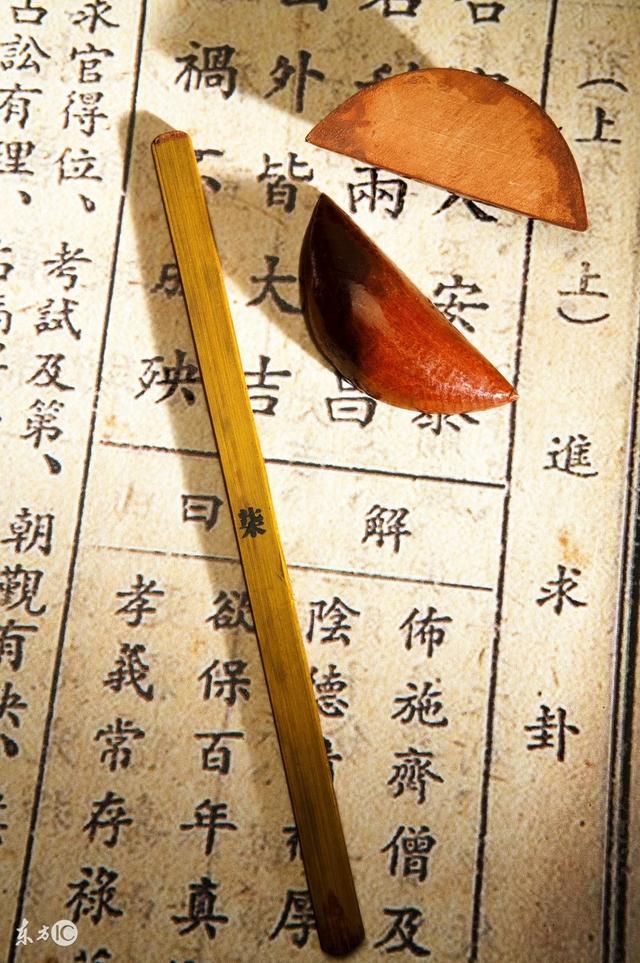 (上上)進求卦
人安泰
兩昌
外皆大吉
禍不成殃
解曰
佈施齊僧及
陰德厚
欲保百年真
孝義常存祿
求官得位、考試及第、朝觀有快、
訟有理、
柒
东方IC